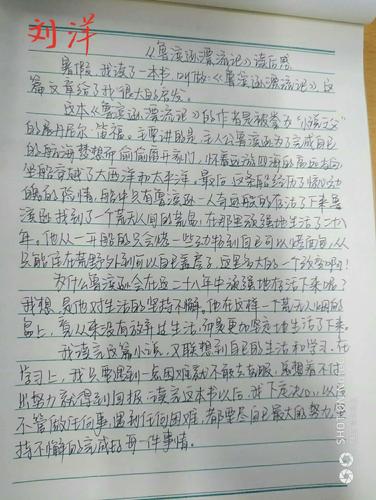 刘洋
《鲁滨逊漂流记》读后感
暑假,我读了一本书,叫做《鲁滨逊漂流记》,这
篇文章给了我很大的启发。
这本《鲁滨逊漂流记》的作者是被誉为“小说之父”
的丹尼尔·笛福。主要讲的是主人公鲁滨逊为了完成自己
的航海梦想而偷偷离开家门,怀着远游四海的高远志向,
坐船穿越了大西洋和太平洋。最后,这条船经历了惊心动
魄的险情,船中只有鲁滨逊一人奇迹般的存活了下来。鲁
滨逊找到了一个荒无人烟的荒岛,在那里顽强地生活了二十八
年。他从一开始的只会
只能住在荒野外到可以自己盖房子,这是多大的一个改变啊!
为什么鲁滨逊会在这二十八年中顽强地存活下来呢?
我想,是他对生活的坚持不懈。他在这样一个荒无人烟的
岛上,
我读完这篇小说,又联想到自己的生活和学习。在
学习上,我只要遇到一点困难就不敢去克服,
出努力就得到回报。读完这本书以后,我下定决心,以后
不管做任何事,遇到任何困难,都要尽自己最大的努力,坚
持不懈的完成好每一件事情。
SHOT ON